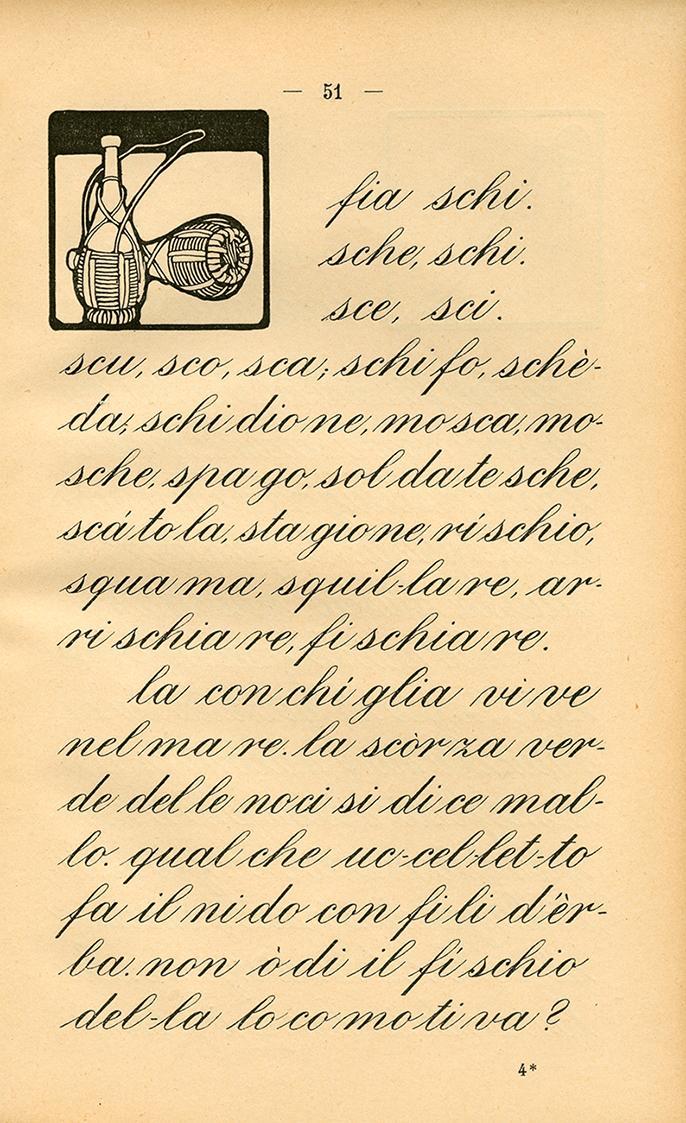 — 51 —
fia schi.
sche, schi.
sce, sci.
scu, sco, sca; schi fo, schè-
da; schi dio ne, mo sca, mo-
sche, spa go, sol da te sche,
scá to la, sta gio ne, rí schio,
squa ma, squil-la re, ar-
ri schia re, fi schia re.
la con chí glia vi ve
nel ma re. la scòr za ver-
de del le noci si di ce mal-
lo. qual che uc-cel-let-to
fa il ni do con fi li d'èr-
ba. non ò di il fí schio
del-la lo co mo ti va?
4*